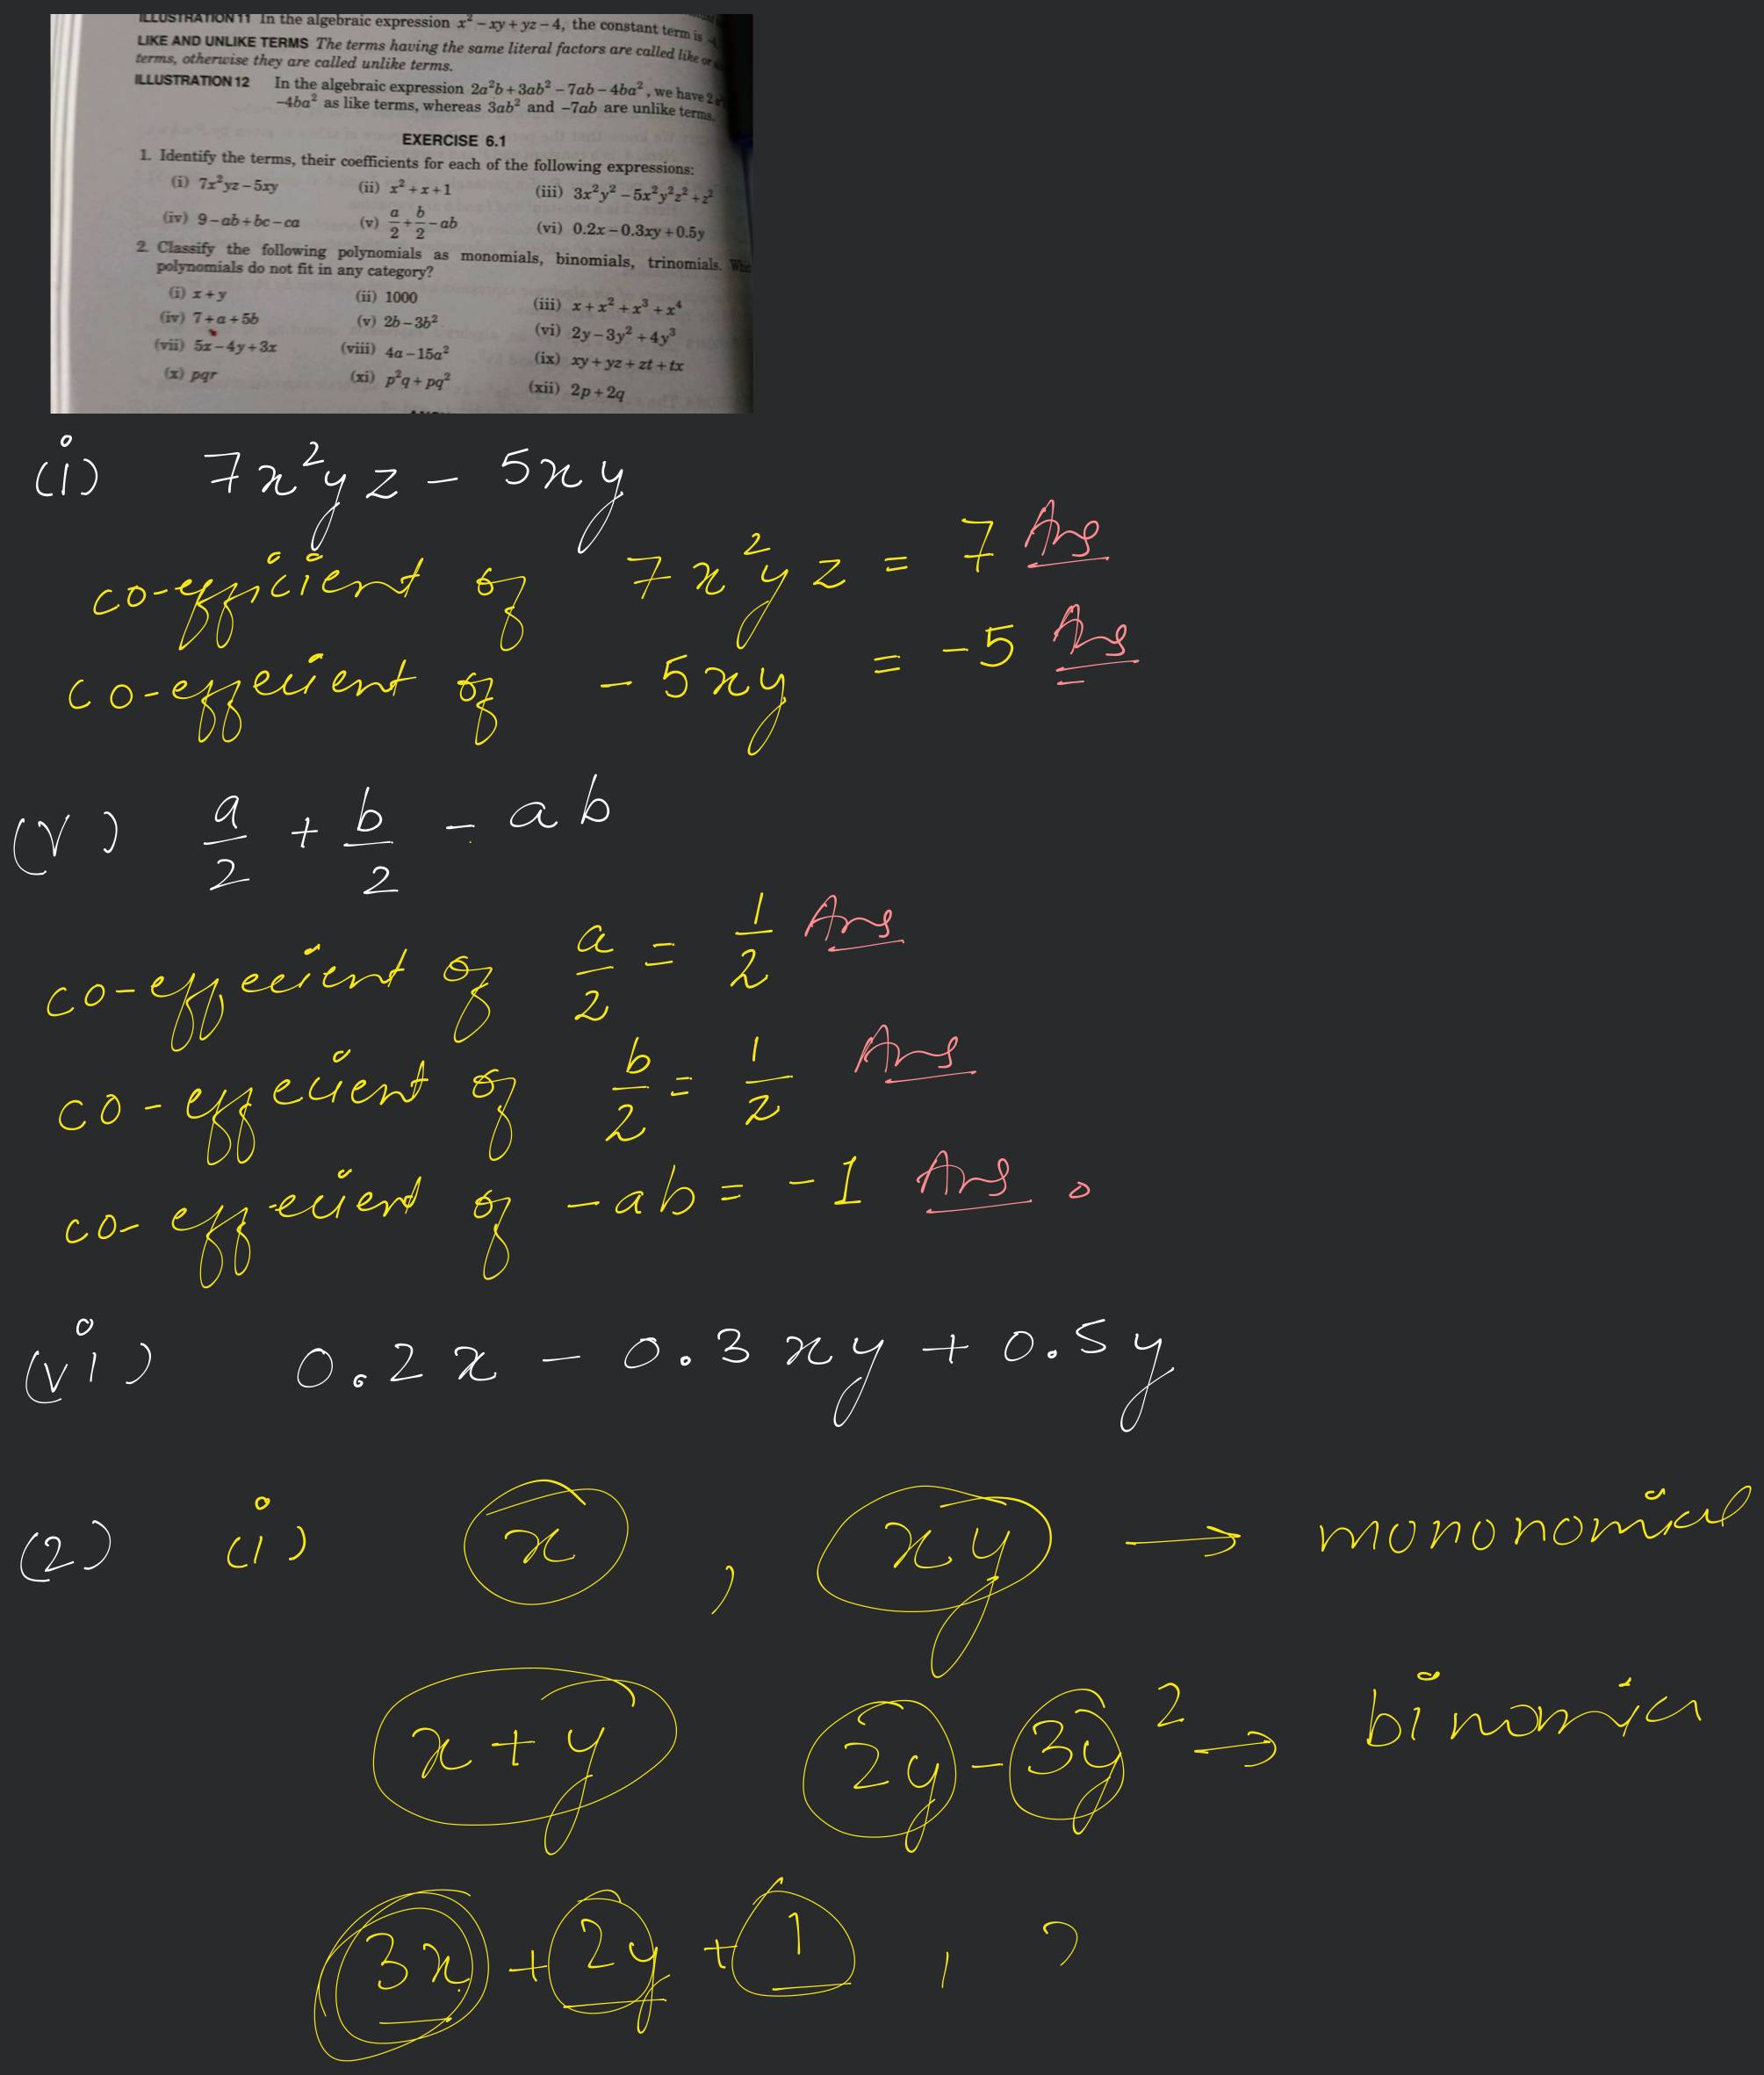 ILLUSTRATION 11 In the algebraic expression x² – xy + yz – 4, the constant term is –4
LIKE AND UNLIKE TERMS The terms having the same literal factors are called like or
terms, otherwise they are called unlike terms.
ILLUSTRATION 12 In the algebraic expression 2a²b + 3ab² – 7ab – 4ba², we have 2
–4ba² as like terms, whereas 3ab² and –7ab are unlike terms.
EXERCISE 6.1
1. Identify the terms, their coefficients for each of the following expressions:
(i) 7x²yz – 5xy (ii) x² + x + 1 (iii) 3x²y² – 5x²y²z² + z²
(iv) 9 – ab + bc – ca (v) a/2 + b/2 – ab (vi) 0.2x – 0.3xy + 0.5y
2. Classify the following polynomials as monomials, binomials, trinomials.
polynomials do not fit in any category?
(i) x + y (ii) 1000 (iii) x + x² + x³ + x⁴
(iv) 7 + a + 5b (v) 2b – 3b² (vi) 2y – 3y² + 4y³
(vii) 5x – 4y + 3x (viii) 4a – 15a² (ix) xy + yz + zt + tx
(x) pqr (xi) p²q + pq² (xii) 2p + 2q
(i) 7x²yz – 5xy
co-efficient of 7x²yz = 7 Ans
co-effecient of – 5xy = -5 Ans
(V) a/2 + b/2 – ab
co-effecient of a/2 = 1/2 Ans
co-effecient of b/2 = 1/2 Ans
co-effecient of – ab = - 1 Ans.
(vi) 0.2x – 0.3xy + 0.5y
(2) (i) x , xy → mononomial
x + y 2y – 3y² → binomia
3x + 2y + 1 ,